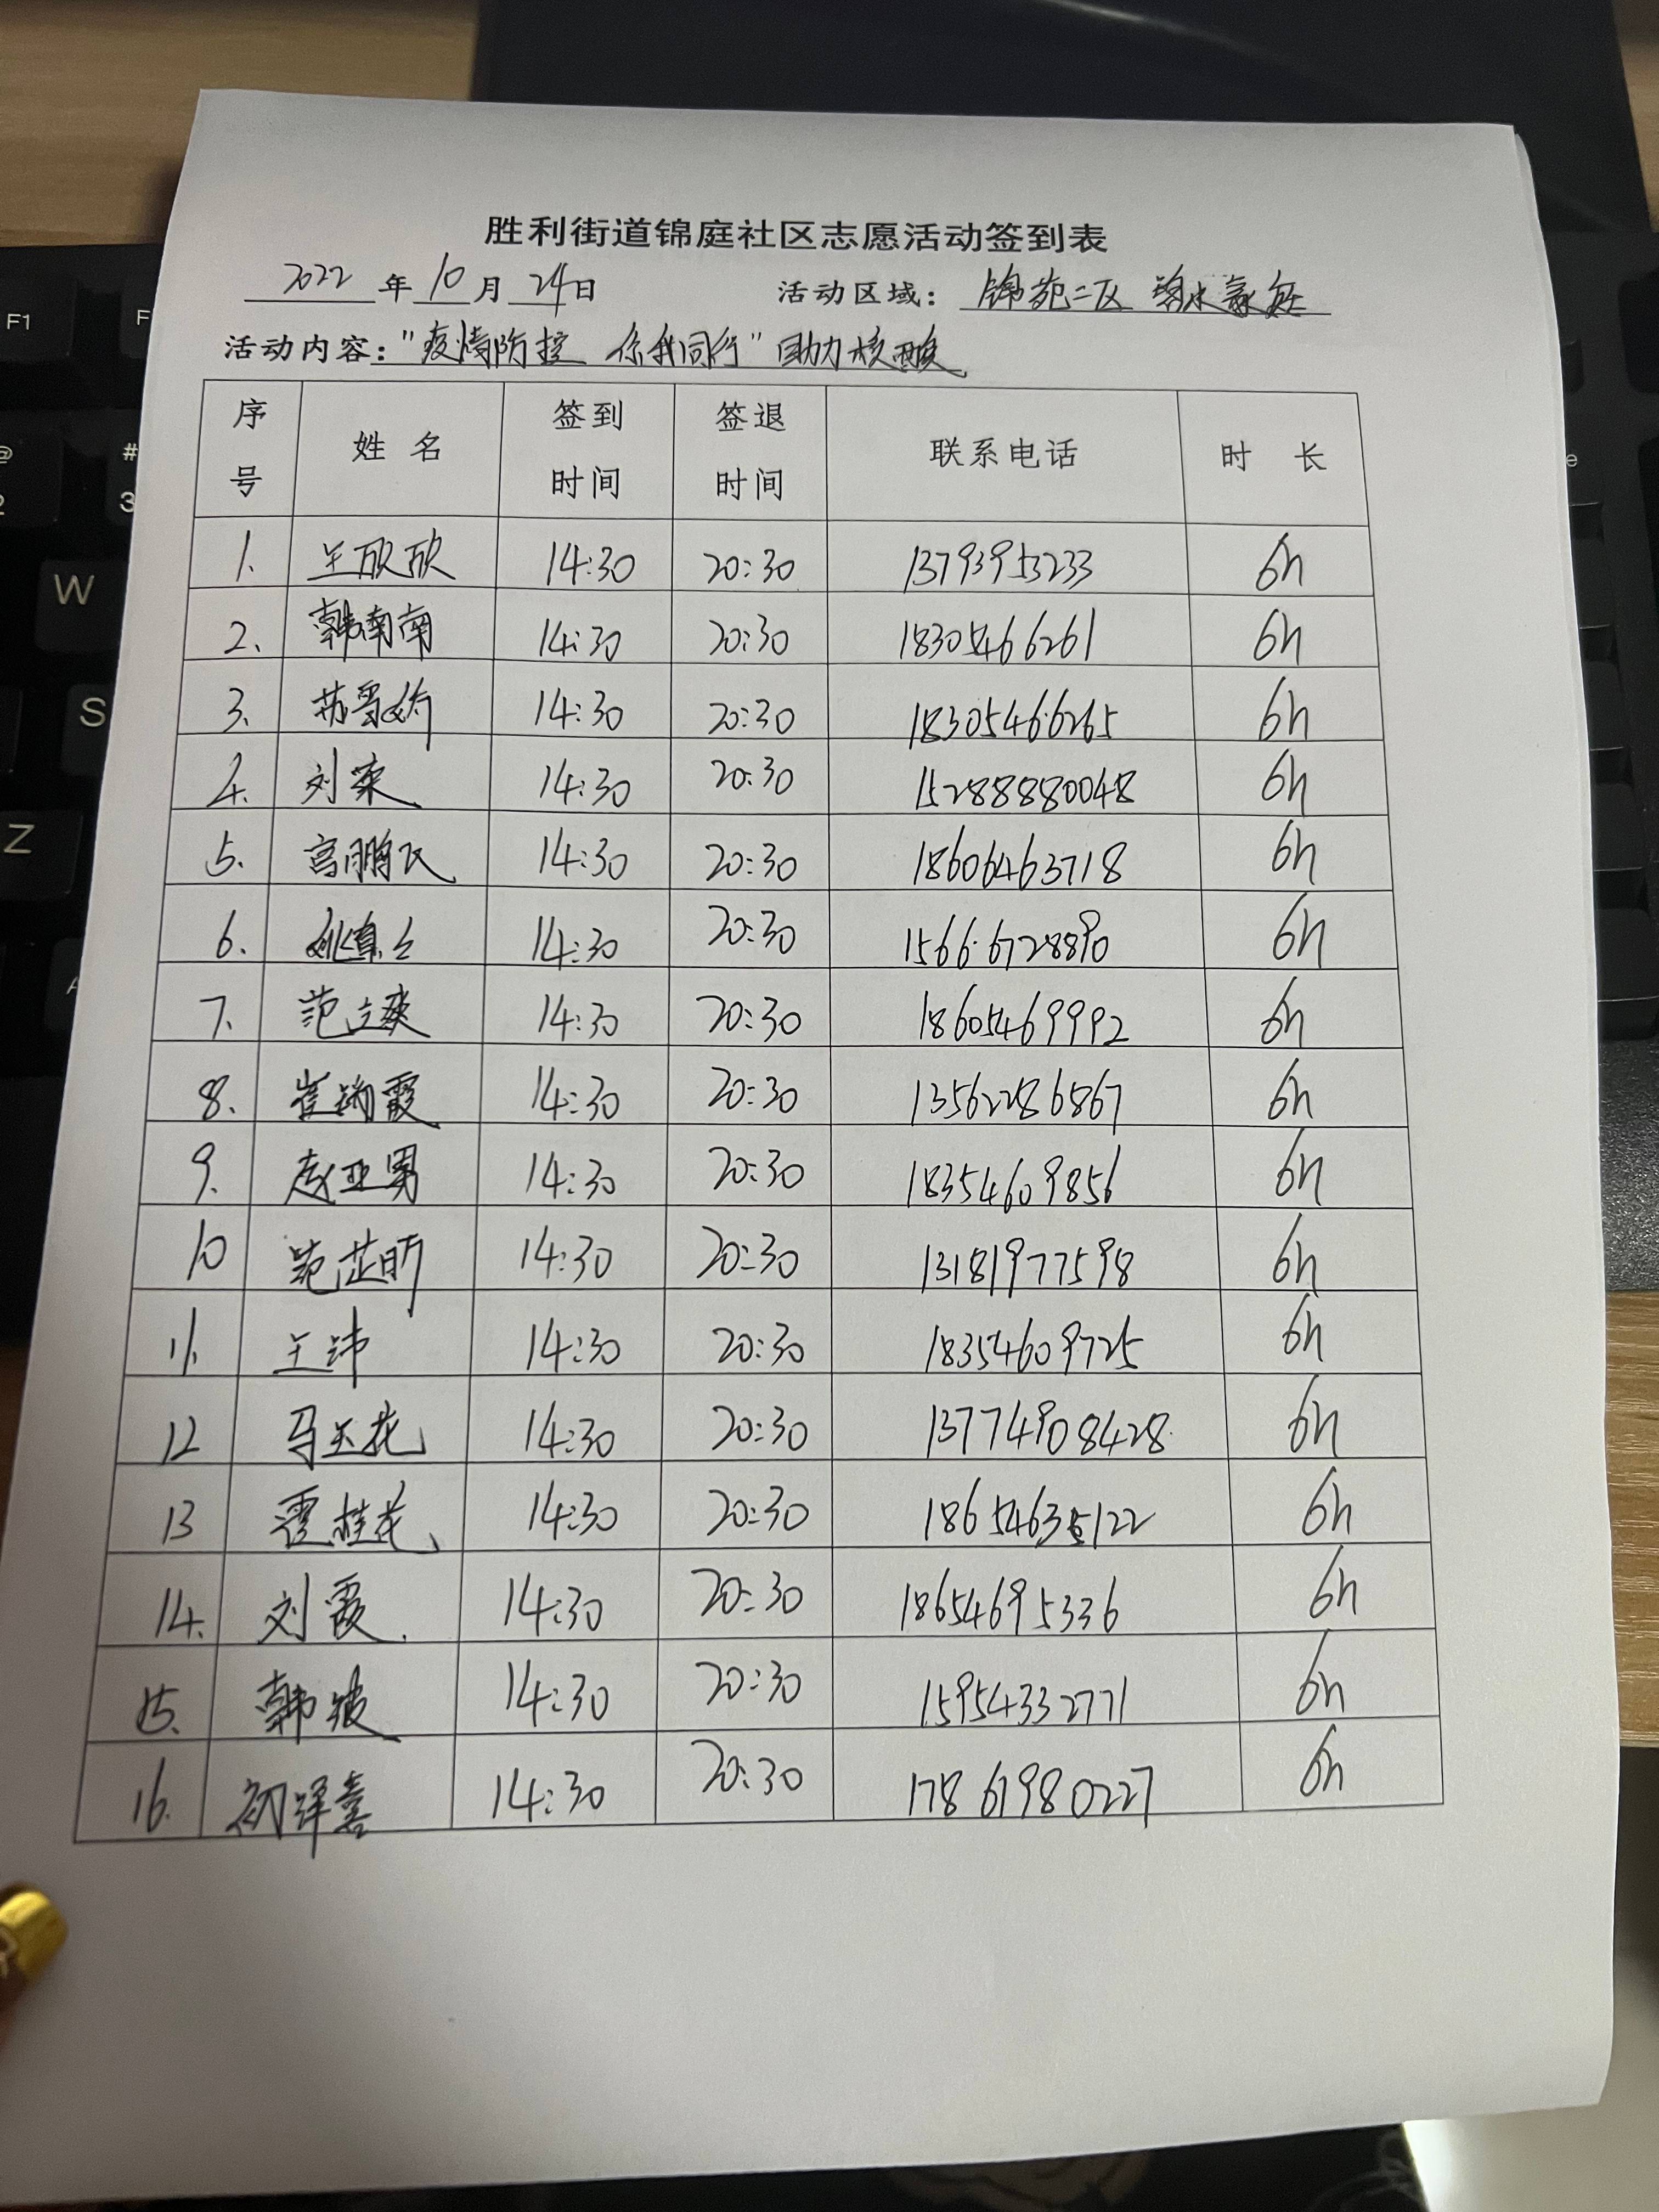 胜利街道锦庭社区志愿活动签到表
2022 年 10 月 24 日 活动区域: 锦苑二区
活动内容: "疫情防控 你我同行" 助力核酸
序号 姓名 签到时间 签退时间 联系电话 时长
1. 王欣欣 14:30 20:30 13793953233 6h
2. 韩南南 14:30 20:30 18305466261 6h
3. 14:30 20:30 18305466265 6h
4. 刘荣 14:30 20:30 15288880048 6h
5. 宫鹏飞 14:30 20:30 18606463718 6h
6. 14:30 20:30 15666728890 6h
7. 范立爽 14:30 20:30 18605469992 6h
8. 14:30 20:30 13562286867 6h
9. 赵亚男 14:30 20:30 18354609856 6h
10 范芷昕 14:30 20:30 13181977598 6h
11. 王玮 14:30 20:30 18354609725 6h
12 马玉花 14:30 20:30 13774908428 6h
13 霍桂花 14:30 20:30 18654635122 6h
14. 刘霞 14:30 20:30 18654695336 6h
15. 14:30 20:30 15954332771 6h
16. 初译熹 14:30 20:30 17861980227 6h
F1
W
S
Z